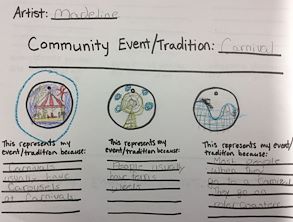 Artist: Madeline
Community Event/Tradition: Carnival
This represents my event/tradition because:
Carnivals
usually have
Carousels
at Carnivals
This represents my event/tradition because:
People usually
have ferris
wheels
This represents my event/tradition because:
Most people
when they
go to a Carnival
They go on
roller coasters